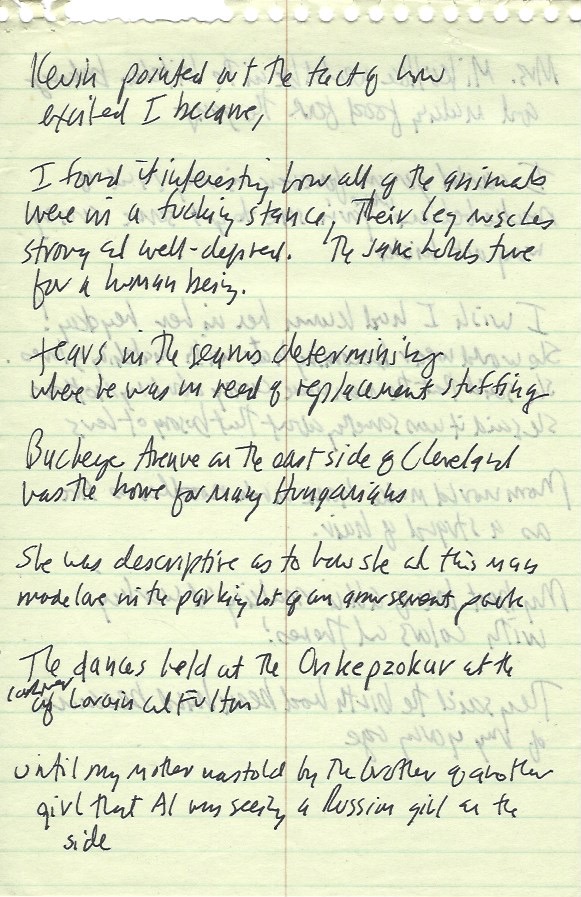 Kevin pointed out the fact of how
excited I became,
I found it interesting how all of the animals
were in a fucking stance, Their leg muscles
strong and well-defined. The same holds true
for a human being.
tears in the seams determining
where he was in need of replacement stuffing
Buckeye Avenue on the east side of Cleveland
was the home for many Hungarians
She was descriptive as to how she and this man
made love in the parking lot of an amusement park
The dances held at the at the
corner of Lorain and Fulton
until my mother was told by the brother of another
girl that Al was seeing a Russian girl on the
side